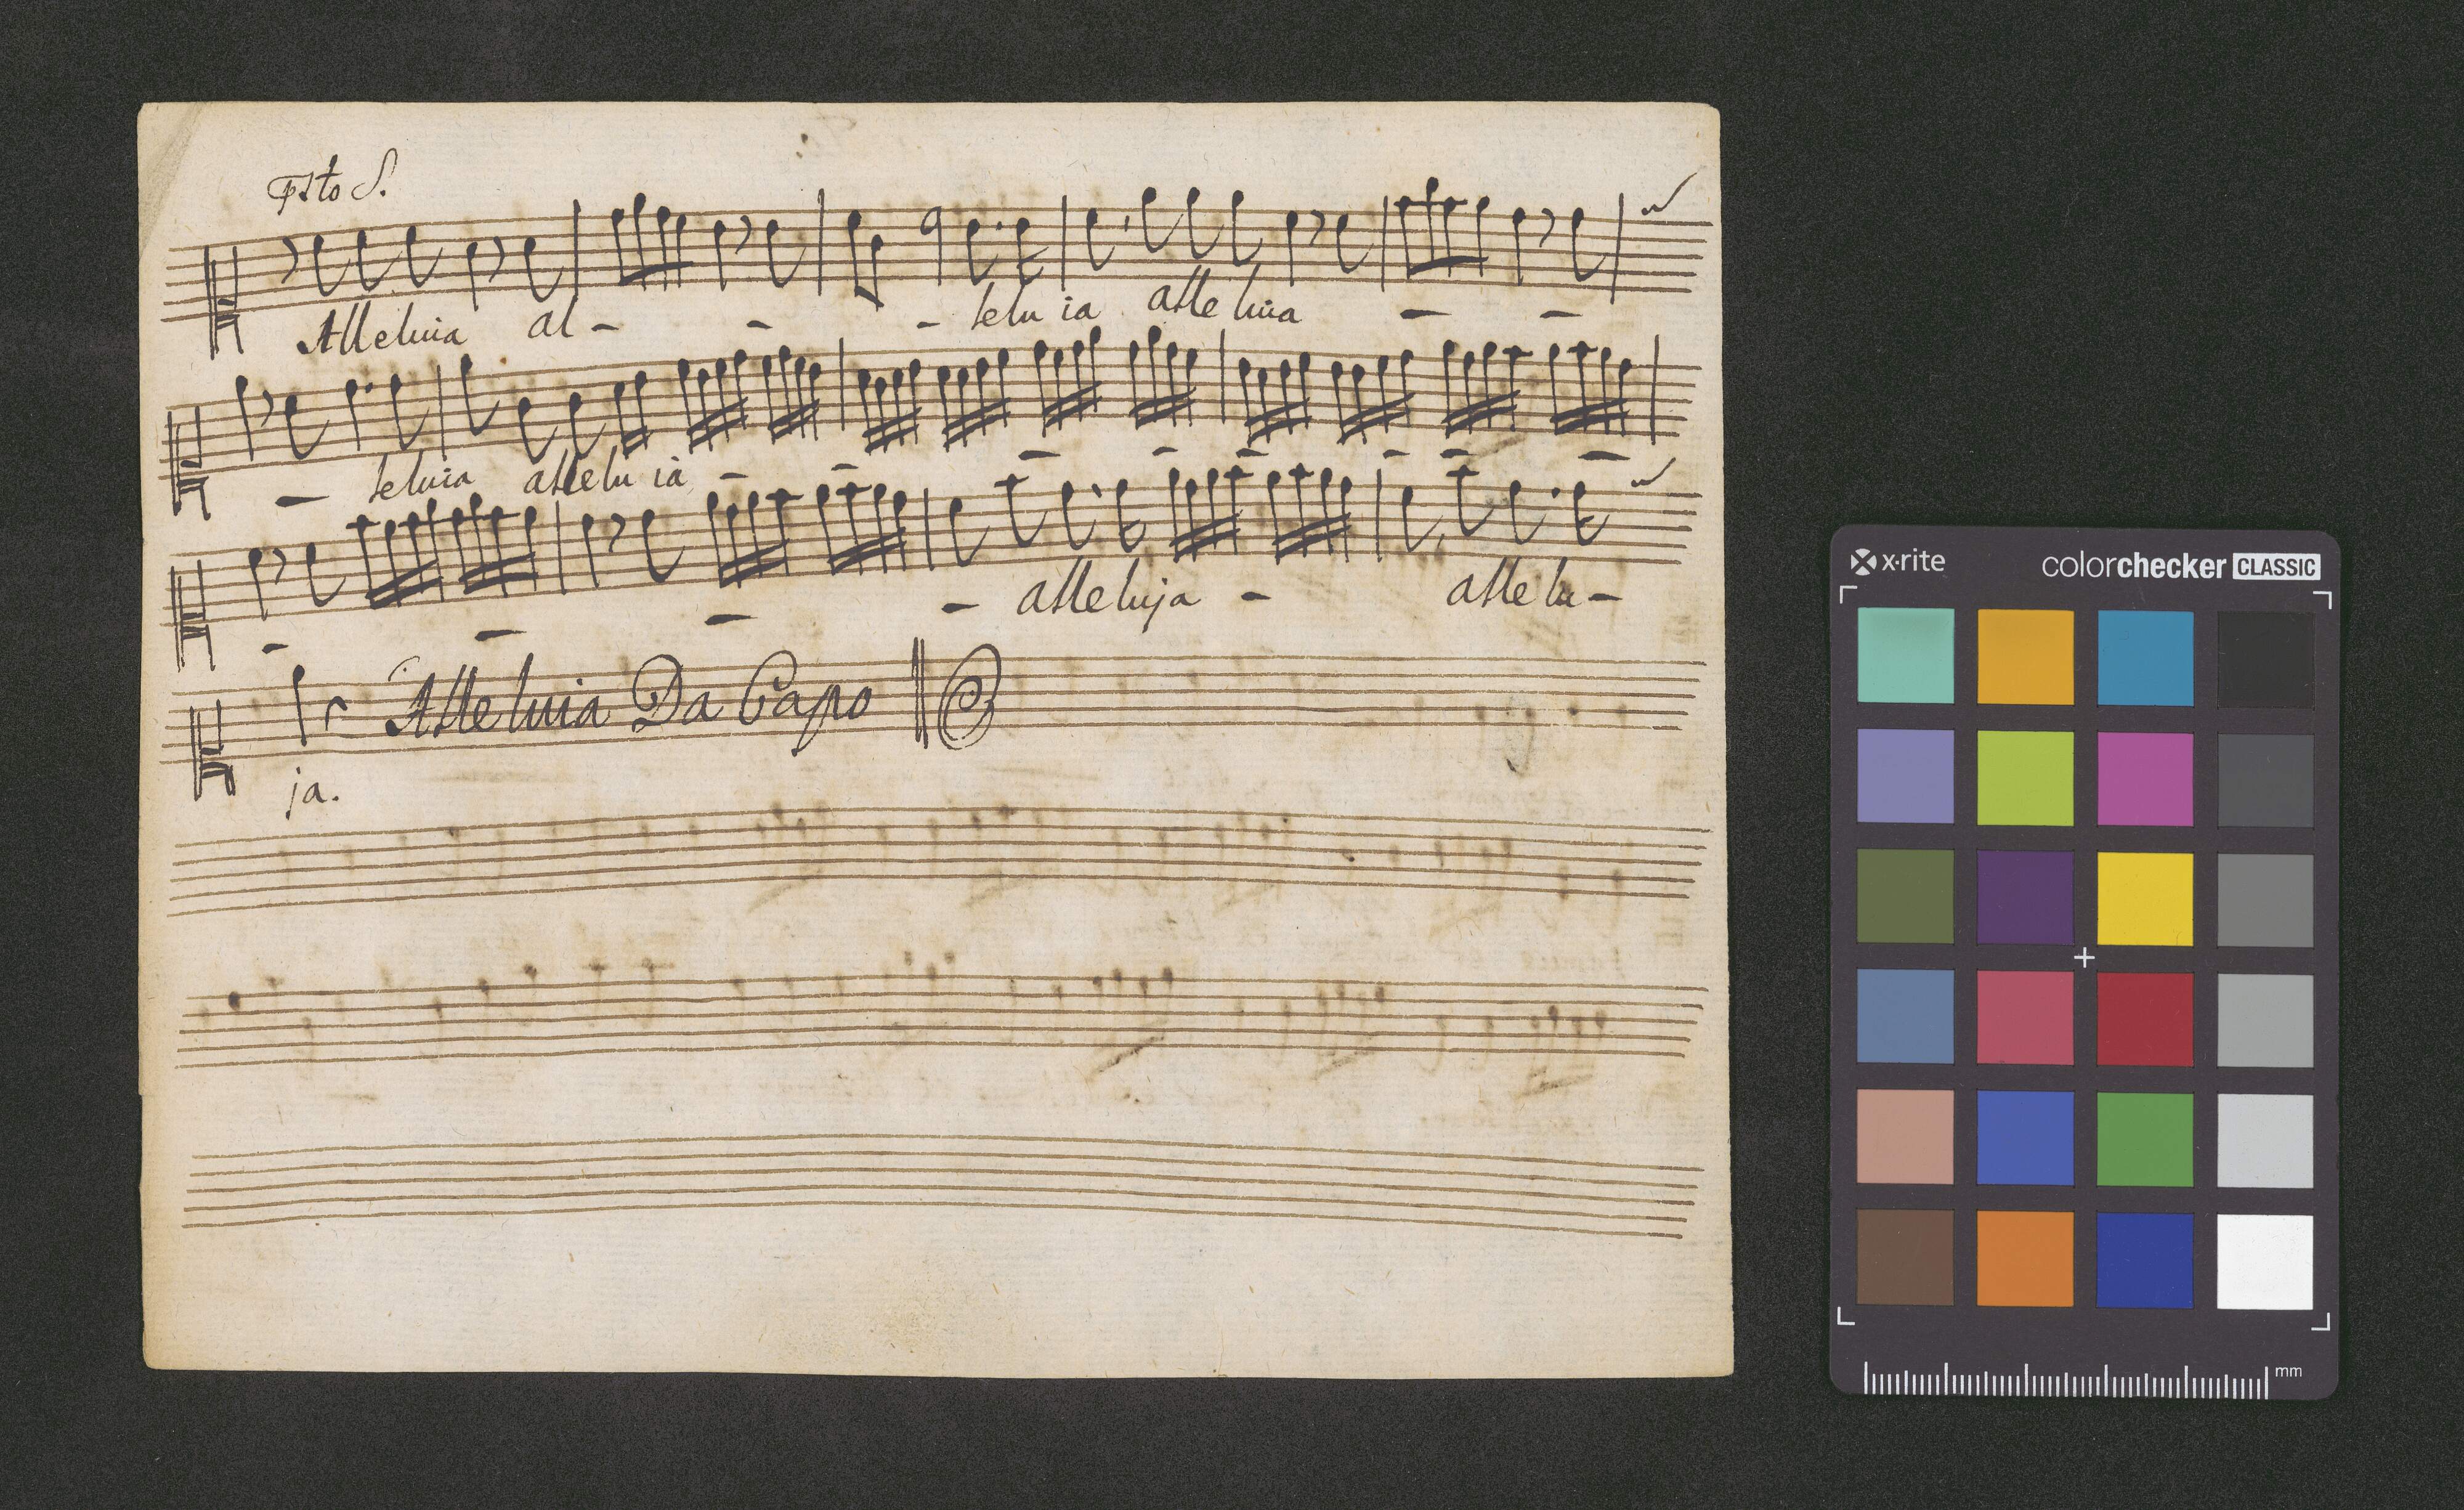 Alleluia al - - - lelu ia alleluia - -
- leluia allelu ia - - - - - - - -
- - - - alleluja - allelu -
Alleluia Da Capo
ja.
x-rite colorchecker CLASSIC
mm